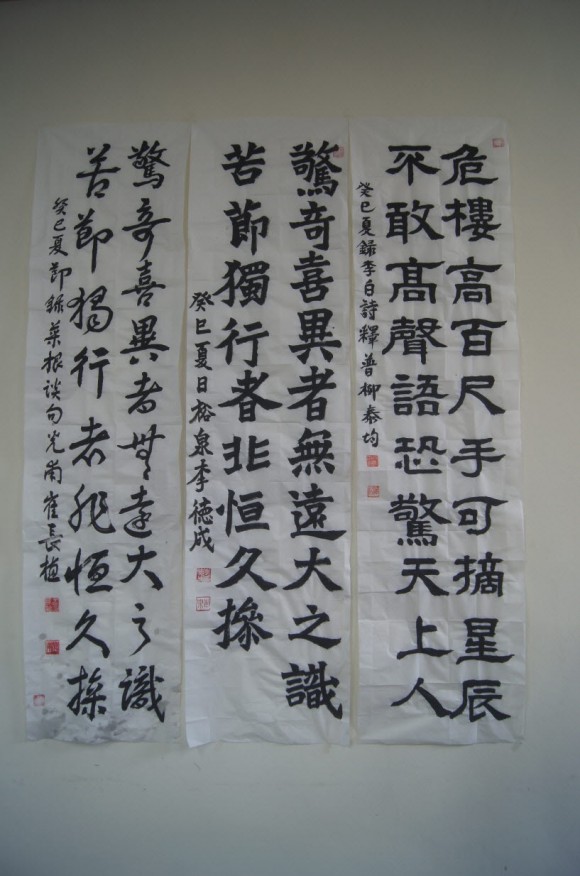 危樓高百尺手可摘星辰
不敢高聲語恐驚天上人
癸巳夏錄李白詩釋普柳泰均
驚奇喜異者無遠大之識
苦節獨行者非恒久操
癸巳夏日裕泉李德成
驚奇喜異者無遠大之識
苦節獨行者非恒久操
癸巳夏節錄菜根談句光南崔長植